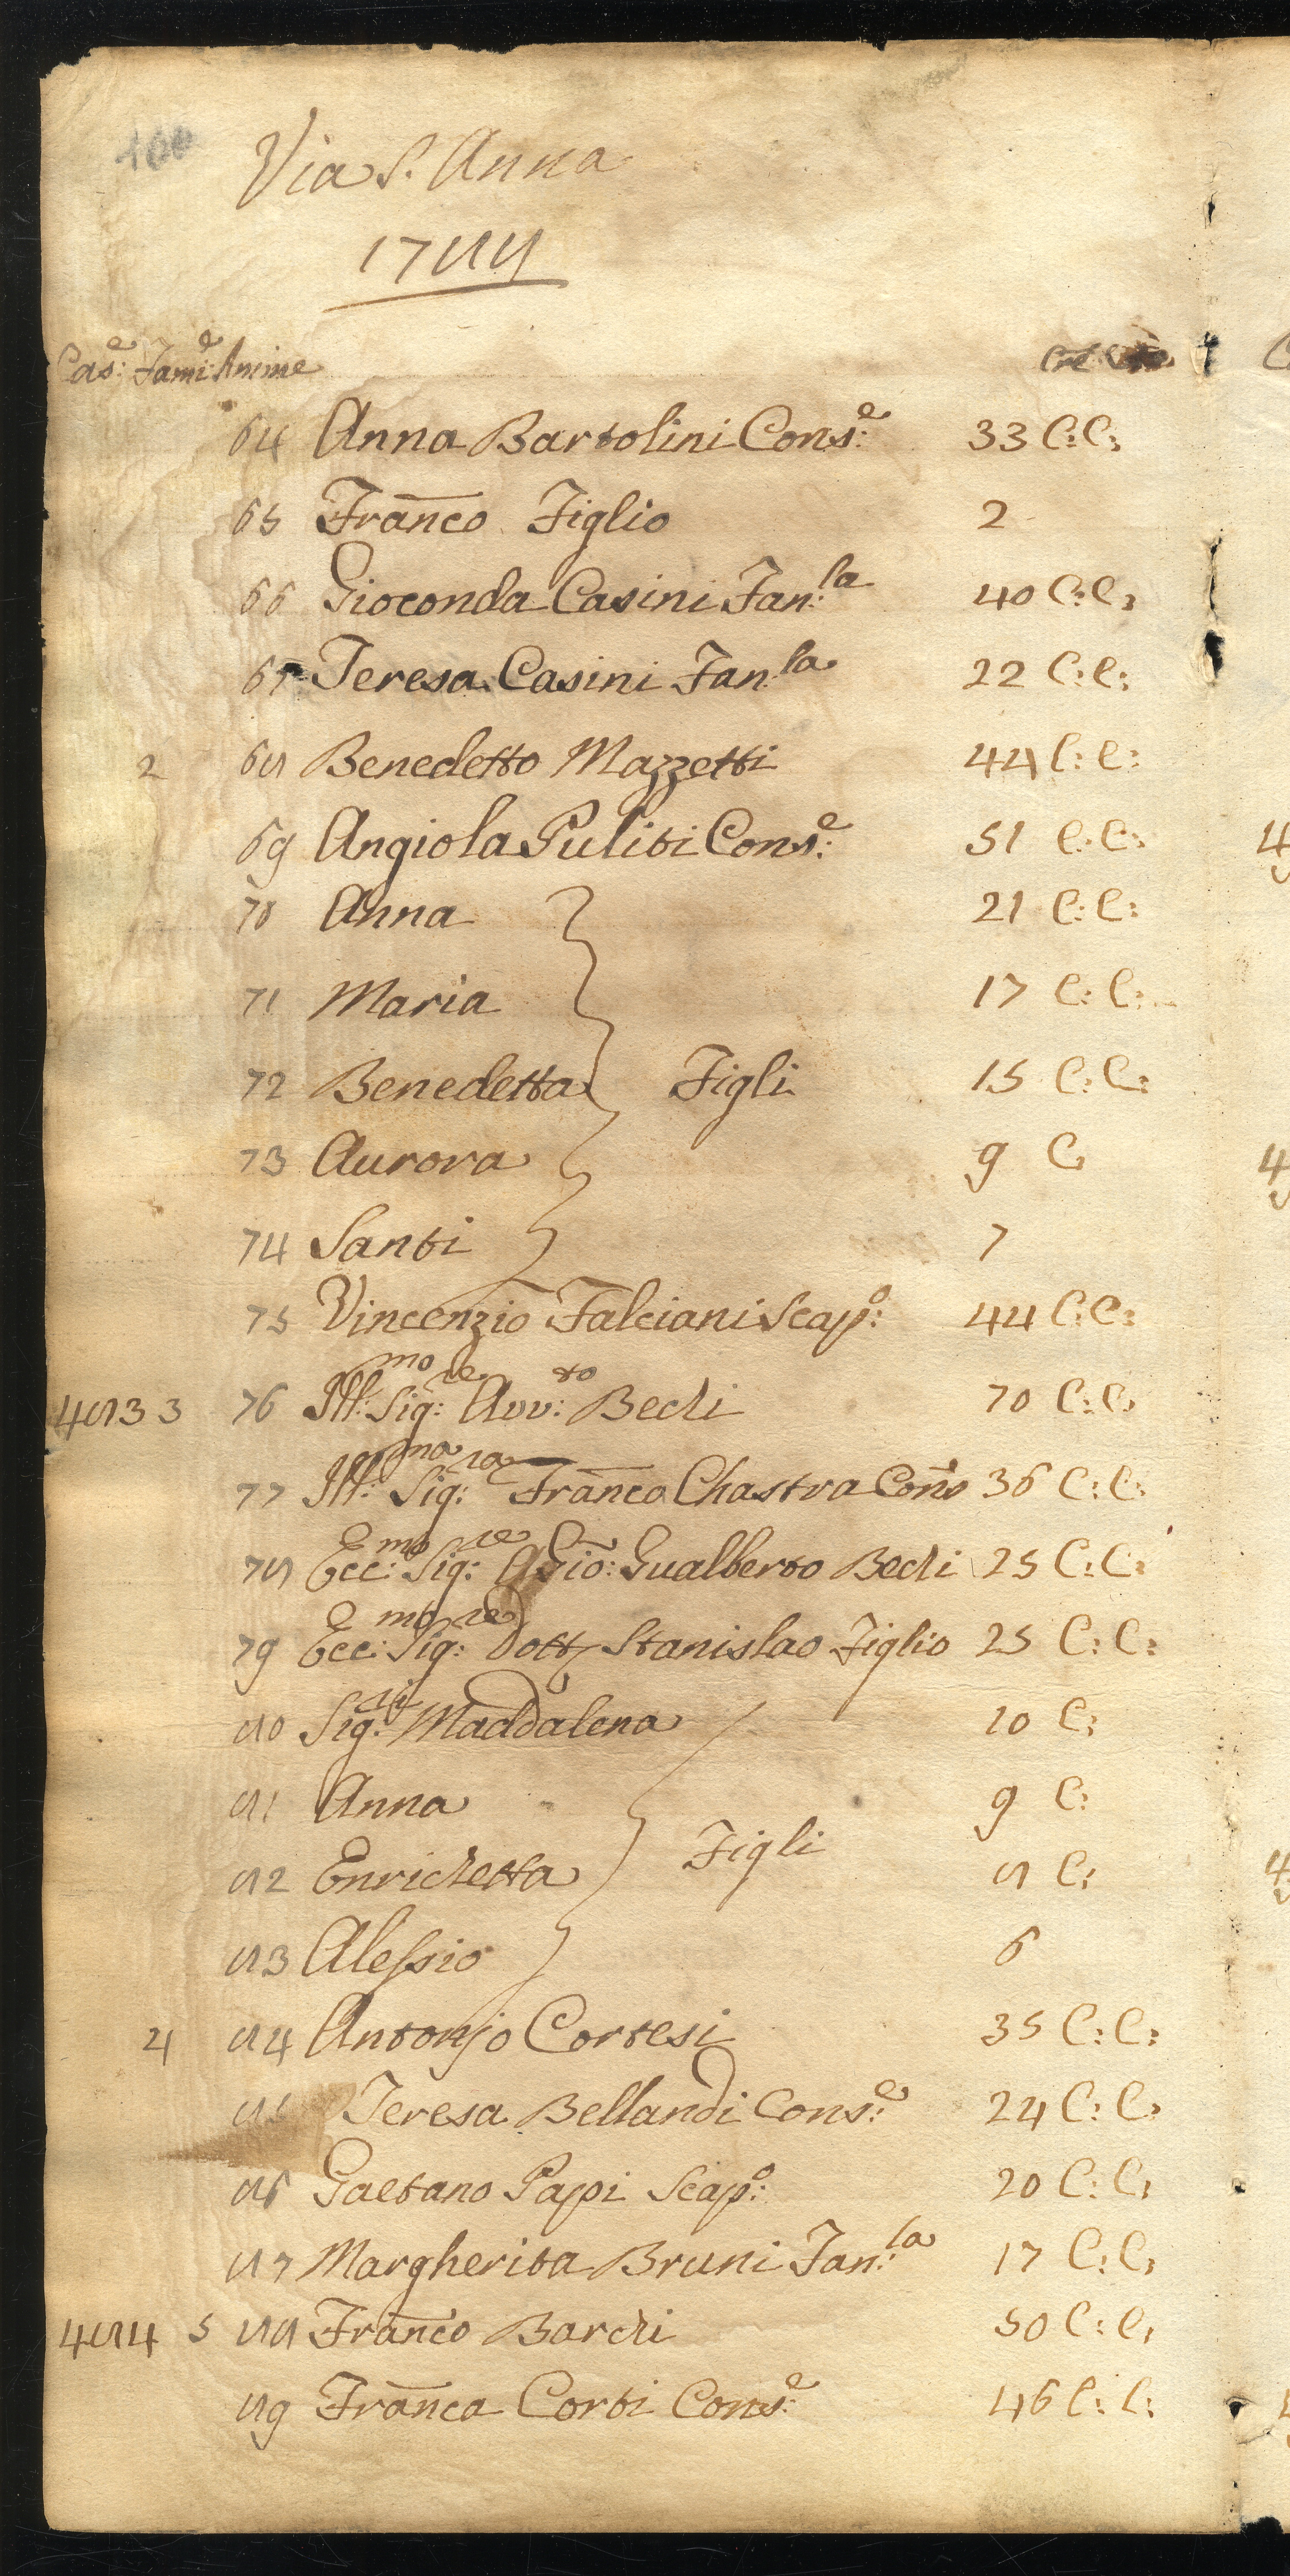 Via S. Anna
1788
Cas:e Fami:e Anime
64 Anna Bartolini Cons:e 33 C: C:
65 Franco Figlio 2
66 Gioconda Casini Fan:la 40 C: C:
67 Teresa Casini Fan:la 22 C: C:
2 68 Benedetto Mazzetti 44 C: C:
69 Angiola Puliti Cons:e 51 C: C:
70 Anna 21 C: C:
71 Maria 17 C: C:
72 Benedetta Figli 15 C: C:
73 Aurora 9 C:
74 Santi 7
75 Vincenzio Falciani Scap:o 44 C: C:
483 3 76 Ill:mo Sig:re Avv:to Bechi 70 C: C:
77 Ill:ma Sig:ra Franca Chastra Cons 36 C: C:
78 Ecc:mo Sig:re A Gio: Gualberto Bechi 25 C: C:
79 Ecc:mo Sig:re Dott Stanislao Figlio 25 C: C:
80 Sig:ri Maddalena 10 C:
81 Anna 9 C:
82 Enrichetta Figli 8 C:
83 Alessio 6
4 84 Antonjo Cortesi 35 C: C:
85 Teresa Bellandi Cons:e 24 C: C:
86 Gaetano Papi Scap:o 20 C: C:
87 Margherita Bruni Fan:la 17 C: C:
484 5 88 Franco Barchi 50 C: C:
89 Franca Corti Cons:e 46 C: C: